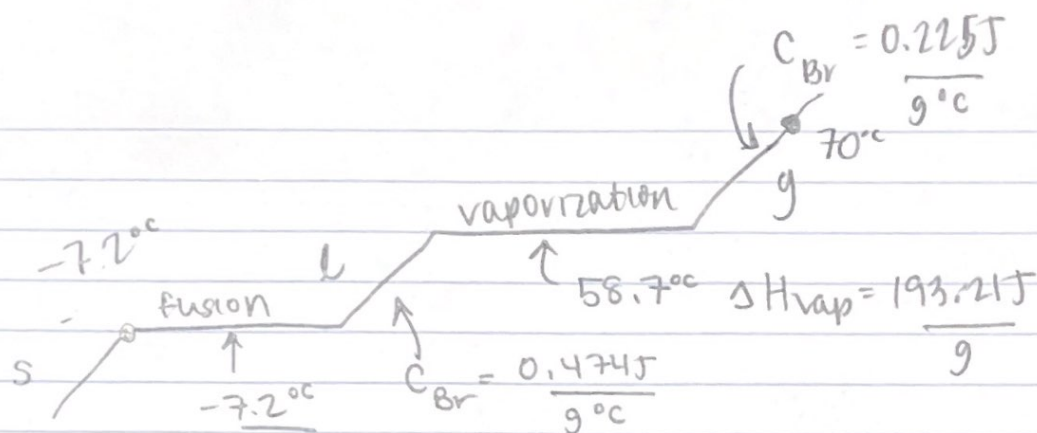 C Br = 0.225J
g°C
70°C
g
vaporization
-7.2°C
l
58.7°C ΔHvap = 193.21J
g
fusion
s
-7.2°C
C Br = 0.474J
g°C